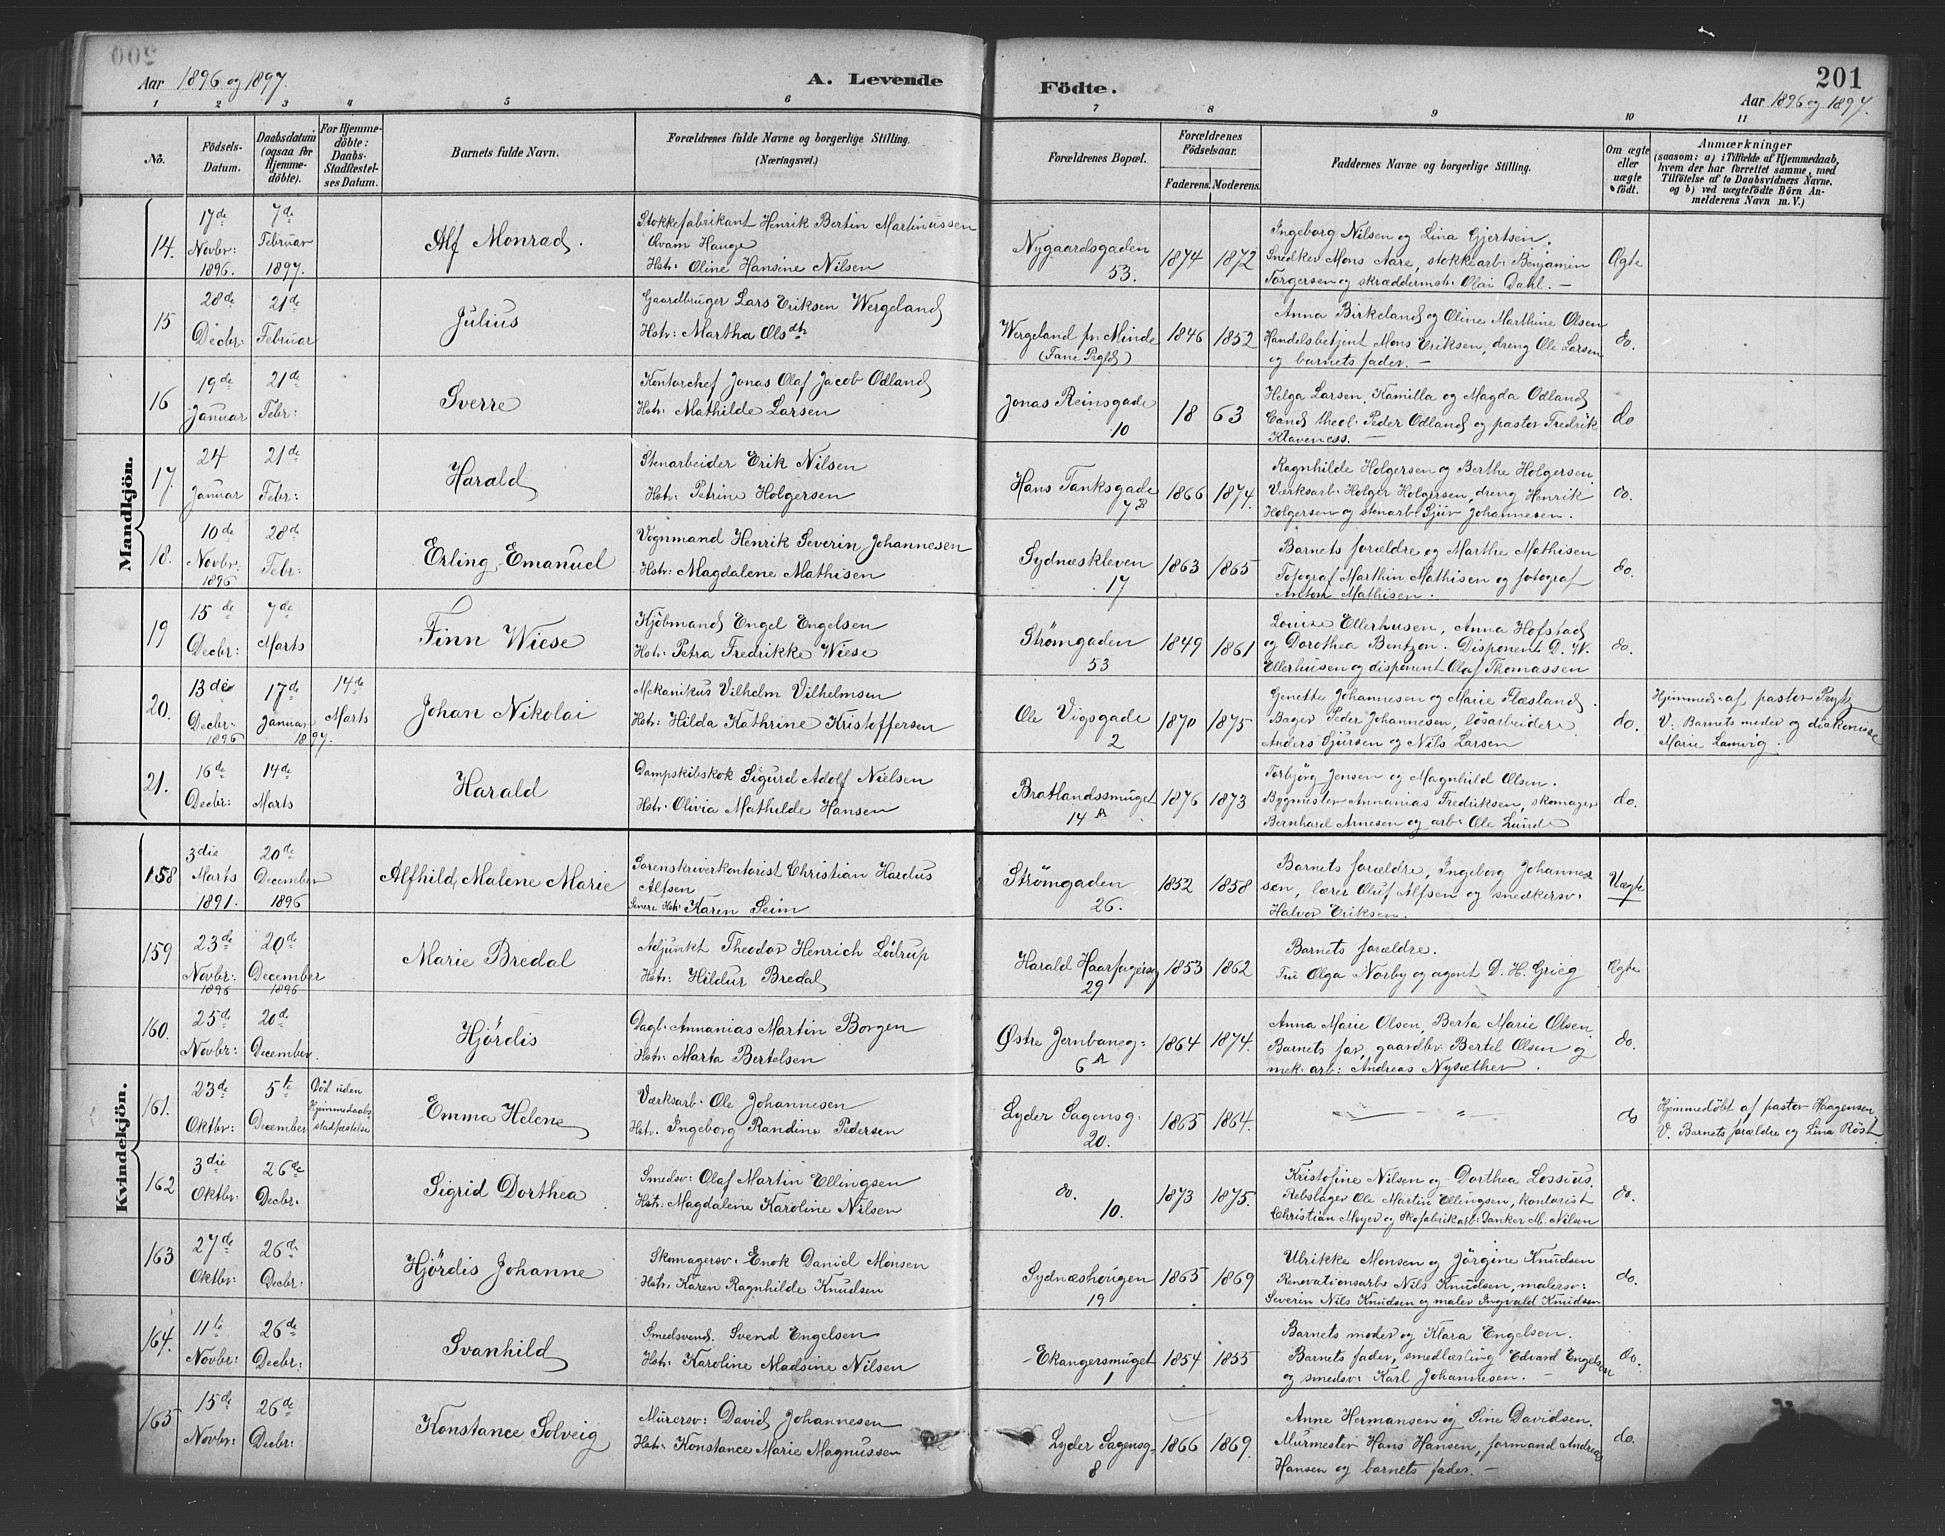 Aar 1896 og 1897.
A. Levende
Födte.
201
Aar 1896 og 1897.
1 2 3 4 5 6 7 8 9 10 11
No.
Födsels-
Datum.
Daabsdatum
(ogsaa for
Hjemme-
döbte).
For Hjemme-
döbte:
Daabs-
Stadfæstel-
ses Datum.
Barnets fulde Navn.
Forældrenes fulde Navne og borgerlige Stilling.
(Næringsvei.)
Forældrenes Bopæl.
Forældrenes
Födselsaar.
Faderens. Moderens.
Faddernes Navne og borgerlige Stilling.
Om ægte
eller
uægte
födt.
Anmærkninger
(saasom: a) i Tilfælde af Hjemmedaab,
hvem der har forrettet samme, med
Tilföielse af to Daabsvidners Navne,
og b) ved uægtefödte Börn An-
melderens Navn m. V.)
Mandkjön.
14. 17de Novbr: 1896. 7de Februar 1897. Alf Monrad. Stokkefabrikant Henrik Bertin Martinussen
Kvam Hauge
Hstr: Oline Hansine Nilsen
Nygaardsgaden 53. 1874 1872
Ingeborg Nilsen og Lina Gjertsen.
Snedker Mons Aare, stokkearb: Benjamin
Torgersen og skræddermstr: Olai Dahl. —
Ægte
15 28de Decbr: 21de Februar Julius Gaardbruger Lars Eriksen Wergeland
Hstr: Martha Olsdtr
Wergeland pr. Minde (Fane Prgld) 1846 1852
Anna Birkeland og Oline Marthine Olsen
Handelsbetjent Mons Eriksen, dreng Ole Larsen
og barnets fader. —
do.
16 19de Januar 21de Febr: Sverre Kontorchef Jonas Olaf Jacob Odland
Hstr: Mathilde Larsen
Jonas Reinsgade 10 18 63
Helga Larsen, Kamilla og Magda Odland
Cand. theol. Peder Odland og pastor Fredrik
Klaveness. —
do
17. 24 Januar 21de Febr: Harald Stenarbeider Erik Nilsen
Hstr: Petrine Holgersen
Hans Tanksgade 7B 1866 1874.
Ragnhilde Holgersen og Berthe Holgersen
Værksarb: Holger Holgersen, dreng Henrik
Holgersen og stenarb: Sjur Johannesen.
do.
18. 10de Novbr: 1896 28de Febr: Erling Emanuel Vognmand Henrik Severin Johannesen
Hstr: Magdalene Mathisen
Sydnæskleven 17 1863 1865
Barnets forældre og Marthe Mathisen
Fotograf Marthin Mathisen og fotograf
Anton Mathisen.
do.
19 15de Decbr: 7de Marts Finn Wiese Kjöbmand Engel Engelsen
Hstr: Petra Fredrikke Wiese
Strömgaden 53 1849 1861
Louise Ellerhusen, Anna Hofstad
og Dorothea Bentzon. Disponent D. W.
Ellerhusen og disponent Olaf Thomassen
do.
20. 13de Decbr: 1896 17de Januar 1897. 14de Marts Johan Nikolai Mekanikus Vilhelm Vilhelmsen
Hstr: Hilda Kathrine Kristoffersen
Ole Vigsgade 2 1870 1875
Jenette Johannesen og Marie Flæsland.
Bager Peder Johannesen, lösarbeidere
Anders Sjursen og Nils Larsen
do.
Hjemmed: af pastor Prytz
V. Barnets moder og diakonisse
Marie Lamvig.
21. 16de Decbr: 14de Marts Harald Dampskibskok Sigurd Adolf Nielsen
Hstr: Olivia Mathilde Hansen
Bratlandssmuget 14A 1876 1873
Torbjörg Jensen og Magnhild Olsen.
Bygmester Annanias Fredriksen, skomager
Bernhard Arnesen og arb: Ole Lunde
do.
Kvindekjön.
158 3die Marts 1891. 20de December 1896 Alfhild Malene Marie Sorenskriverkontorist Christian Hardus
Alfsen
Senere Hstr: Karen Seim
Strömgaden 26. 1852 1858
Barnets forældre, Ingeborg Johannes
sen, lærer Oluf Alfsen og snedkersv:
Halvor Eriksen.
Uægte
159 23de Novbr: 1896 20de December 1896 Marie Bredal Adjunkt Theodor Henrich Lödrup
Hstr: Hildur Bredal
Harald Haarfagersg 29 1853 1862
Barnets forældre.
Fru Olga Norby og agent D. H. Grieg
Ægte
160. 25de Novbr: 20de December. Hjördis Dagl: Annanias Martin Borgen
Hstr: Marta Bertelsen
Östre Jernbaneg: 6A 1864 1874.
Anna Marie Olsen, Berta Marie Olsen
Barnets far, gaardbr: Bertel Olsen og
mek. arb: Andreas Nysæther.
do.
161. 23de Oktbr: 5te December Död uden Hjemmedaabs stadfæstelse Emma Helene Værksarb: Ole Johannesen
Hstr. Ingeborg Randine Pedersen
Lyder Sagensg: 20. 1865 1864.
— „ —
do
Hjemmedöbt af pastor Haagensen.
V. Barnets forældre og Lina Röst.
162 3die Oktbr: 26de Decbr. Sigrid Dorthea Smedsv: Olaf Martin Ellingsen
Hstr: Magdalene Karoline Nilsen
do. 10. 1873 1875.
Kristofine Nilsen og Dorthea Lossius.
Rebslager Ole Martin Ellingsen, kontorist
Christian Meyer og Skofabrikarb: Danker M. Nilsen
do.
163 27de Oktbr: 26de Decbr: Hjördis Johanne Skomagersv: Enok Daniel Monsen
Hstr: Karen Ragnhilde Knudsen
Sydnæshougen 19 1865 1869
Ulrikke Monsen og Jörgine Knudsen
Renovationsarb: Nils Knudsen, malersv:
Severin Nils Knudsen og maler Ingvald Knudsen
do.
164. 11te Novbr: 26de Decbr: Svanhild Smedsvend. Svend Engelsen
Hstr: Karoline Madsine Nilsen
Ekangersmuget 1 1854 1855
Barnets moder og Klara Engelsen.
Barnets fader, smedlærling Edvard Engelsen
og smedsv: Karl Johannesen. —
do.
165 15de Novbr: 26de Decbr: Konstance Solveig Murersv: David Johannesen
Hstr: Konstance Marie Magnussen
Lyder Sagensg: 8 1866 1869.
Anne Hermansen og Sine Davidsen.
Murmester Hans Hansen, formand Andreas
Hansen og barnets fader. —
do.